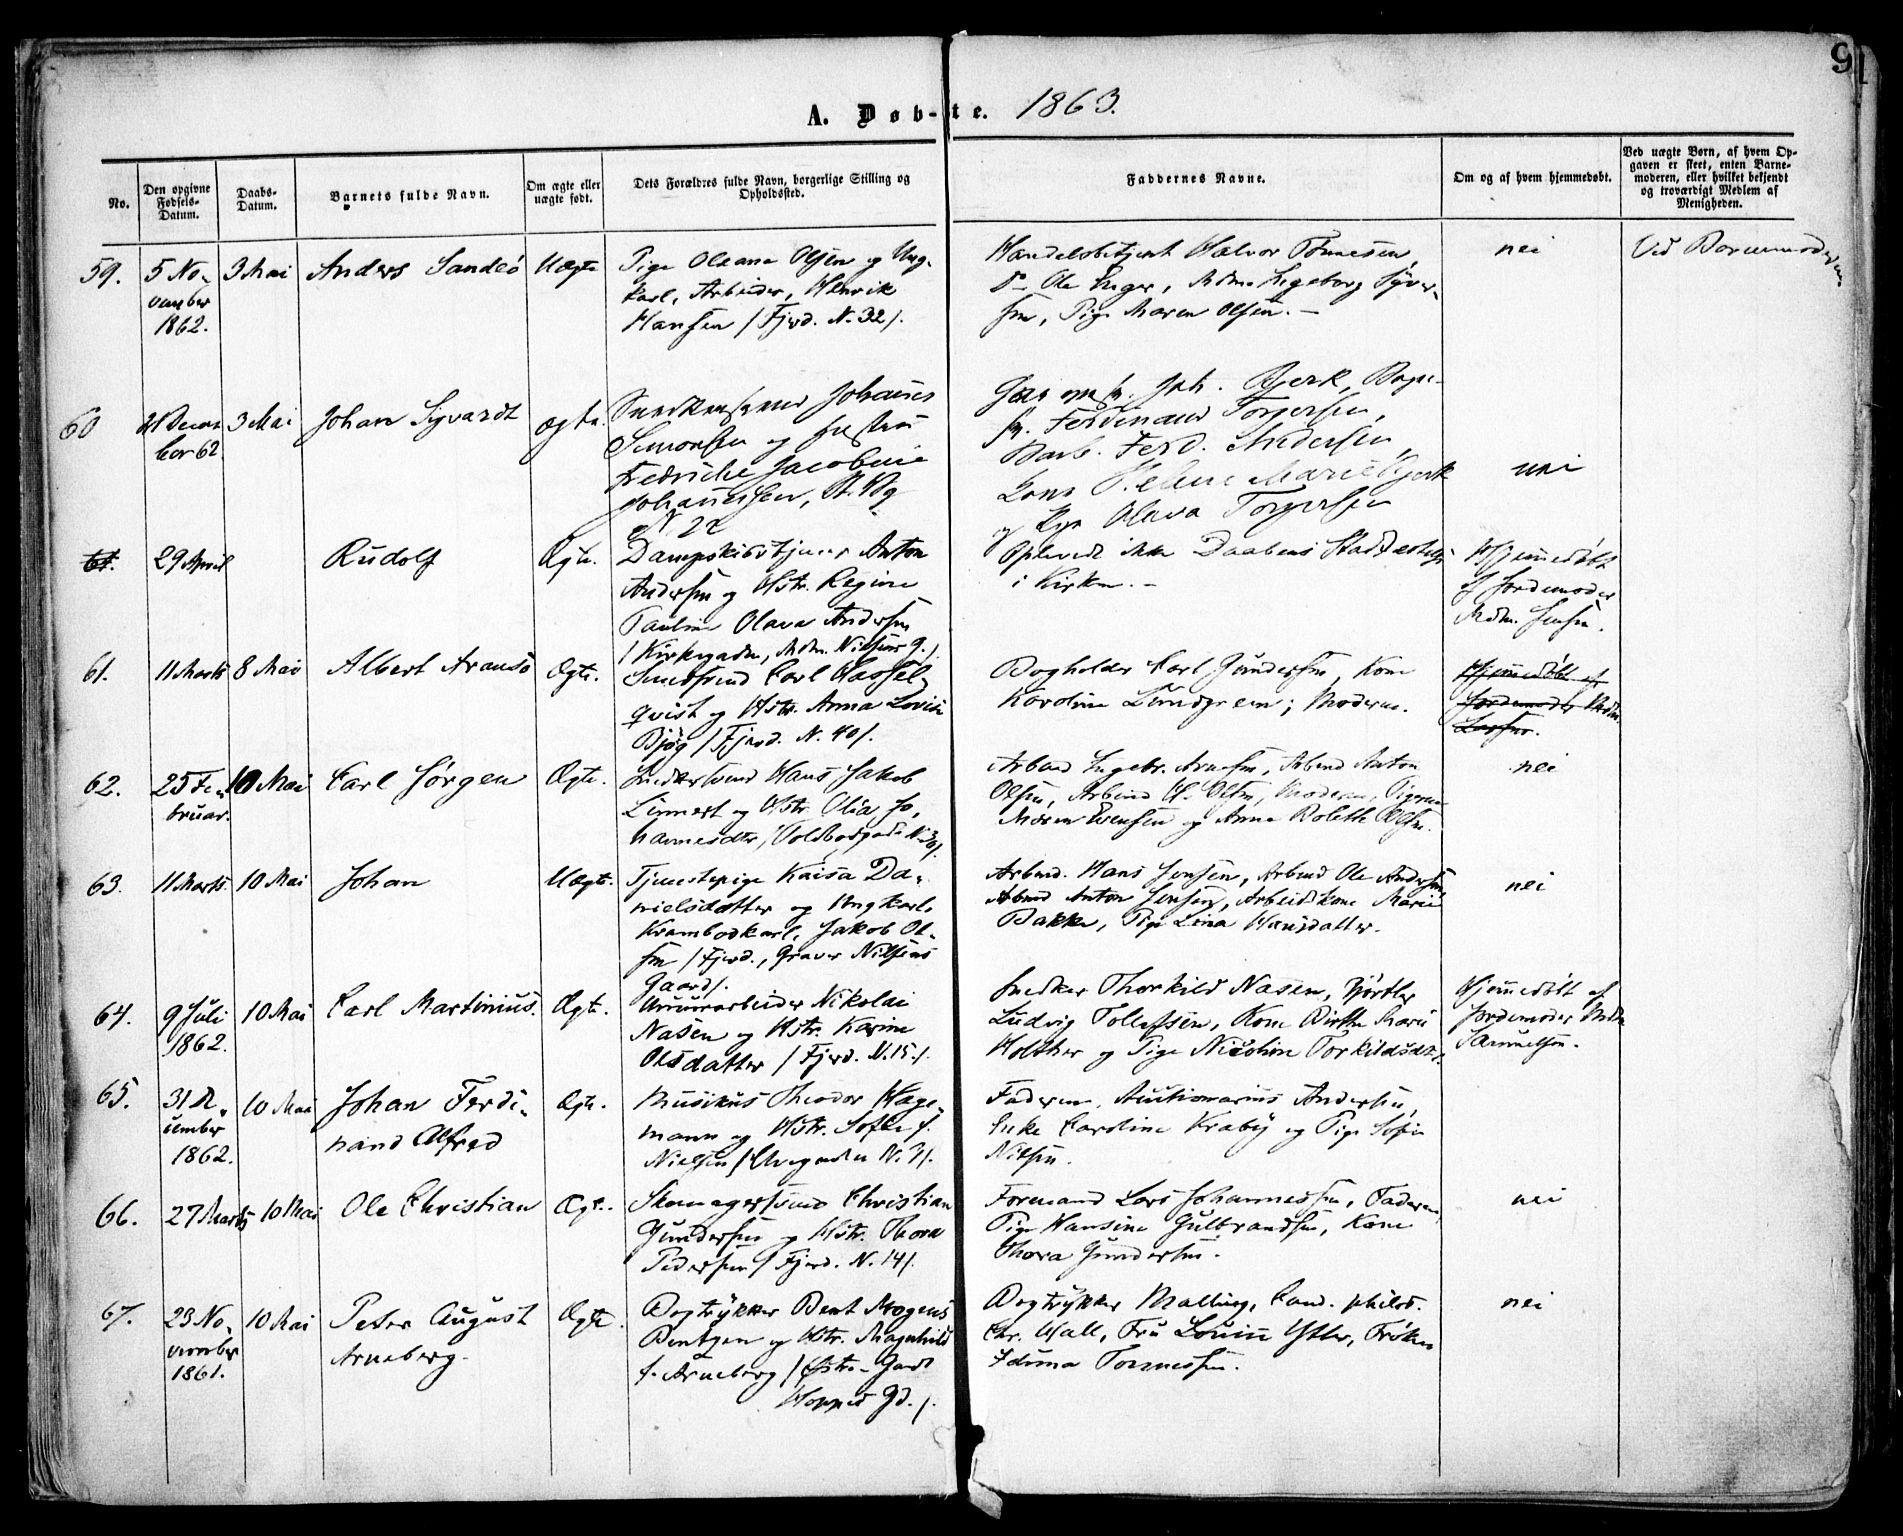 91
A. Døb-te. 1863.
No.
Den opgivne Fødsels-Datum.
Daabs-Datum.
Barnets fulde Navn.
Om ægte eller uægte født.
Dets Forældres fulde Navn, borgerlige Stilling og Opholdssted.
Faddernes Navne.
Om og af hvem hjemmedøbt.
Ved uægte Børn, af hvem Opgaven er skeet, enten Barnemoderen, eller hvilket bekjendt og troværdigt Medlem af Menigheden.
59.
5 No-
vember
1862.
3 Mai
Anders Sandeö
Uægte
Pige Oleane Olsen og Ung-
karl, Arbeider, Henrik
Hansen /Fjerd. N. 32/.
Handelsbetjent Halvor Tønnesen,
Do Ole Unger, Mdm. Ingeborg Syver-
sen, Pige Maren Olsen. –
nei
Ved Barnemoderen
60
21 Decem
ber 62
3 Mai
Johan Sigvardt
ægte.
Snedkersvend Johannes
Simonsen og Hustru
Fredrikke Jacobine
Johannessen,
N 22
Joh. Bjerk, Bager-
sv. Ferdinand Torgersen,
Ferd. Andersen,
Kone Helene Marie Bjerk
og Olava Torgersen
nei
61.
29 April
Rudolf
Ægte.
Dampskibstjener Anton
Andersen og Hstr. Regine
Pauline Olava Andersen
/Kirkegaden, Mdm. Nilsens G./
Oplevede ikke Daabens Stadfæstelse
i Kirken. –
Hjemmedøbt
af Jordemoder
Mdm. Jensen.
61.
11 Marts
8 Mai
Albert Aransö
Ægte.
Smedsvend Carl Hassel-
qvist og Hstr. Anna Lovise
Bjøg /Fjerd. N. 40/.
Bogholder Carl Gundersen, Kone
Karoline Lundgreen; Moderen.
Hjemmedøbt af
Jordemoder Mdm
Larsen.
62.
25 Fe-
bruar.
10 Mai
Carl Jörgen
Ægte.
Snedkersvend Hans Jakob
Linnert og Hstr. Olia Jo-
hannesdtr, /Voldborgade N.
Arbmd Ingebr. Arnesen, Arbmd Anton
Olsen, Arbmd H. Olsen, Moderen, Pigerne
Maren Evensen og Anne Bolethe Olsen.
nei
63.
11 Marts.
10 Mai
Johan
Uægte.
Tjenestepige Kaisa Da-
nielsdatter og Ungkarl,
Krambodkarl, Jakob Ol-
sen /Fjerd., Graver Nilsens
Gaard/.
Arbmd. Hans Jensen, Arbmd Ole Andersen
Arbmd Anton Jensen, Arbeidskone Marie
Bakke, Pige Lina Hansdatter.
nei
64.
9 Juli
1862.
10 Mai
Carl Martinius.
Ægte.
Murerarbeider Nikolai
Nasen og Hstr. Karine
Olsdatter /Fjerd. N. 15./
Snedker Thorkild Nasen, Gjørtler
Ludvig Tollefsen, Kone Birthe Marie
Holther og Pige Nicoline Torkildsdtr.
Hjemmedøbt af
Jordemoder Mdm
Samuelsen.
65.
31 De-
cember
1862.
10 Mai
Johan Ferdi-
nand Alfred
Ægte.
Musikus Theodor Hage-
mann og Hstr. Sofie f.
Nielsen /Elvegaden N. 7/.
Faderen, Auctionarius Andersen,
Enke Caroline Kraby og Pige Sofie
Nilsen.
66.
27 Marts
10 Mai
Ole Christian
Ægte.
Skomagersvend Christian
Gundersen og Hstr. Thora
Pedersen /Fjerd. N. 14/.
Formand Lars Johannessen, Faderen,
Pige Hansine Gulbrandsen, Kone
Thora Gundersen.
nei
67.
23 No-
vember
1861.
10 Mai
Peter August
Arneberg.
Ægte.
Bogtrykker Bent Mogens
Bentzen og Hstr. Magnhild
f. Arneberg /Østre-Gade
Hoppes Gd./.
Bogtrykker Malling, Cand. philos.
Chr. Hall, Fru Lovise Ytter, Frøken
Iduna Tønnessen.
nei